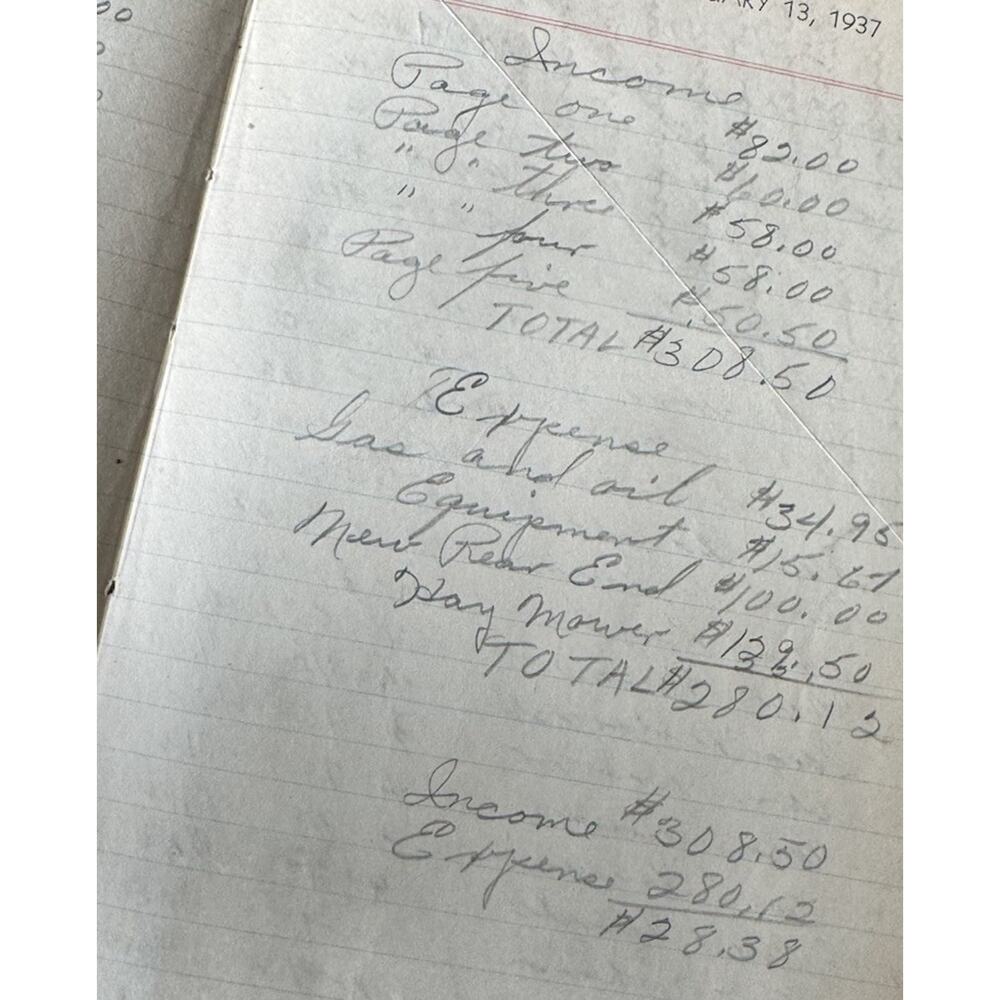 UARY 13, 1937
Income
Page one $82.00
Page two $60.00
" " three $58.00
" " four $58.00
Page five $50.50
TOTAL $308.50
Expense
Gas and oil $34.95
Equipment $15.67
New Rear End $100.00
Hay Mower $129.50
TOTAL $280.12
Income $308.50
Expense 280.12
$28.38